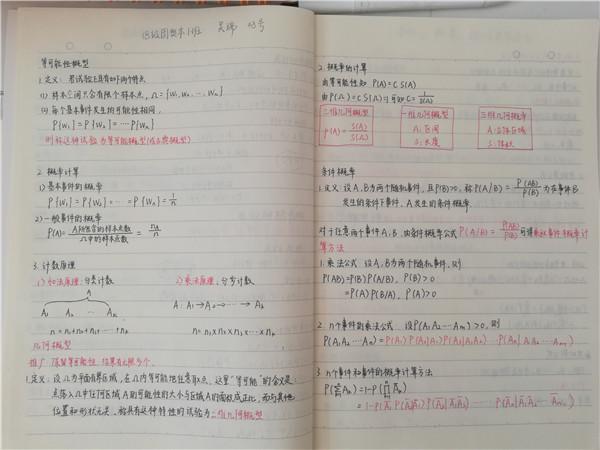 吴瑞 03号
等可能性概型
1.定义：若试验E具有如下两个特点
(1) 样本空间只含有限个样本点，Ω={W₁, W₂, …, Wₙ}
(2) 每个基本事件发生的可能性相同，
P{W₁}=P{W₂}=…P{Wₙ}
则称这种试验为等可能概型(或古典概型)
2. 概率计算
1)基本事件的概率
P{W₁}=P{W₂}=…=P{Wₙ}=1/n
2)一般事件的概率
P(A)=A所包含的样本点数/Ω中的样本点数=n_A/n
3. 计数原理
1)加法原理：分类计数
A
A₁ A₂ … Aₖ
n=n₁+n₂+n₃+…+nₖ
2)乘法原理：分步计数
A: A₁→A₂→…→Aₖ
n=n₁×n₂×n₃×…×nₖ
几何概型
推广：保留等可能性，结果有无限多个.
1.定义：设Ω为平面有界区域，在Ω内等可能地任意取点，这里"等可能"的含义是：
点落入Ω中任何区域A的可能性的大小与区域A的面积成正比，而与其他
位置和形状无关，称具有这种特性的试验为二维几何概型
2. 概率的计算
由等可能性知 P(A)=CS(A)
由P(Ω)=CS(Ω)=1可知C=1/S(Ω)
二维几何概型
P(A)=S(A)/S(Ω)
一维几何概型
A:区间
S:长度
三维几何概率
A:立体区域
S:体积
条件概率
1.定义：设A,B为两个随机事件，且P(B)>0，称P(A|B)=P(AB)/P(B)为在事件B
发生的条件下事件，A发生的条件概率.
对于任意两个事件A,B，由条件概率公式P(A|B)=P(AB)/P(B)可得乘积事件概率计
算方法
1.乘法公式 设A,B为两个随机事件，则
P(AB)=P(B)P(A|B), P(B)>0
=P(A)P(B|A), P(A)>0
2. n个事件的乘法公式 设P(A₁A₂…Aₙ₋₁)>0，则
P(A₁A₂…Aₙ)=P(A₁)P(A₂|A₁)P(A₃|A₁A₂)…P(Aₙ|A₁A₂…Aₙ₋₁)
3. n个事件和事件的概率计算方法